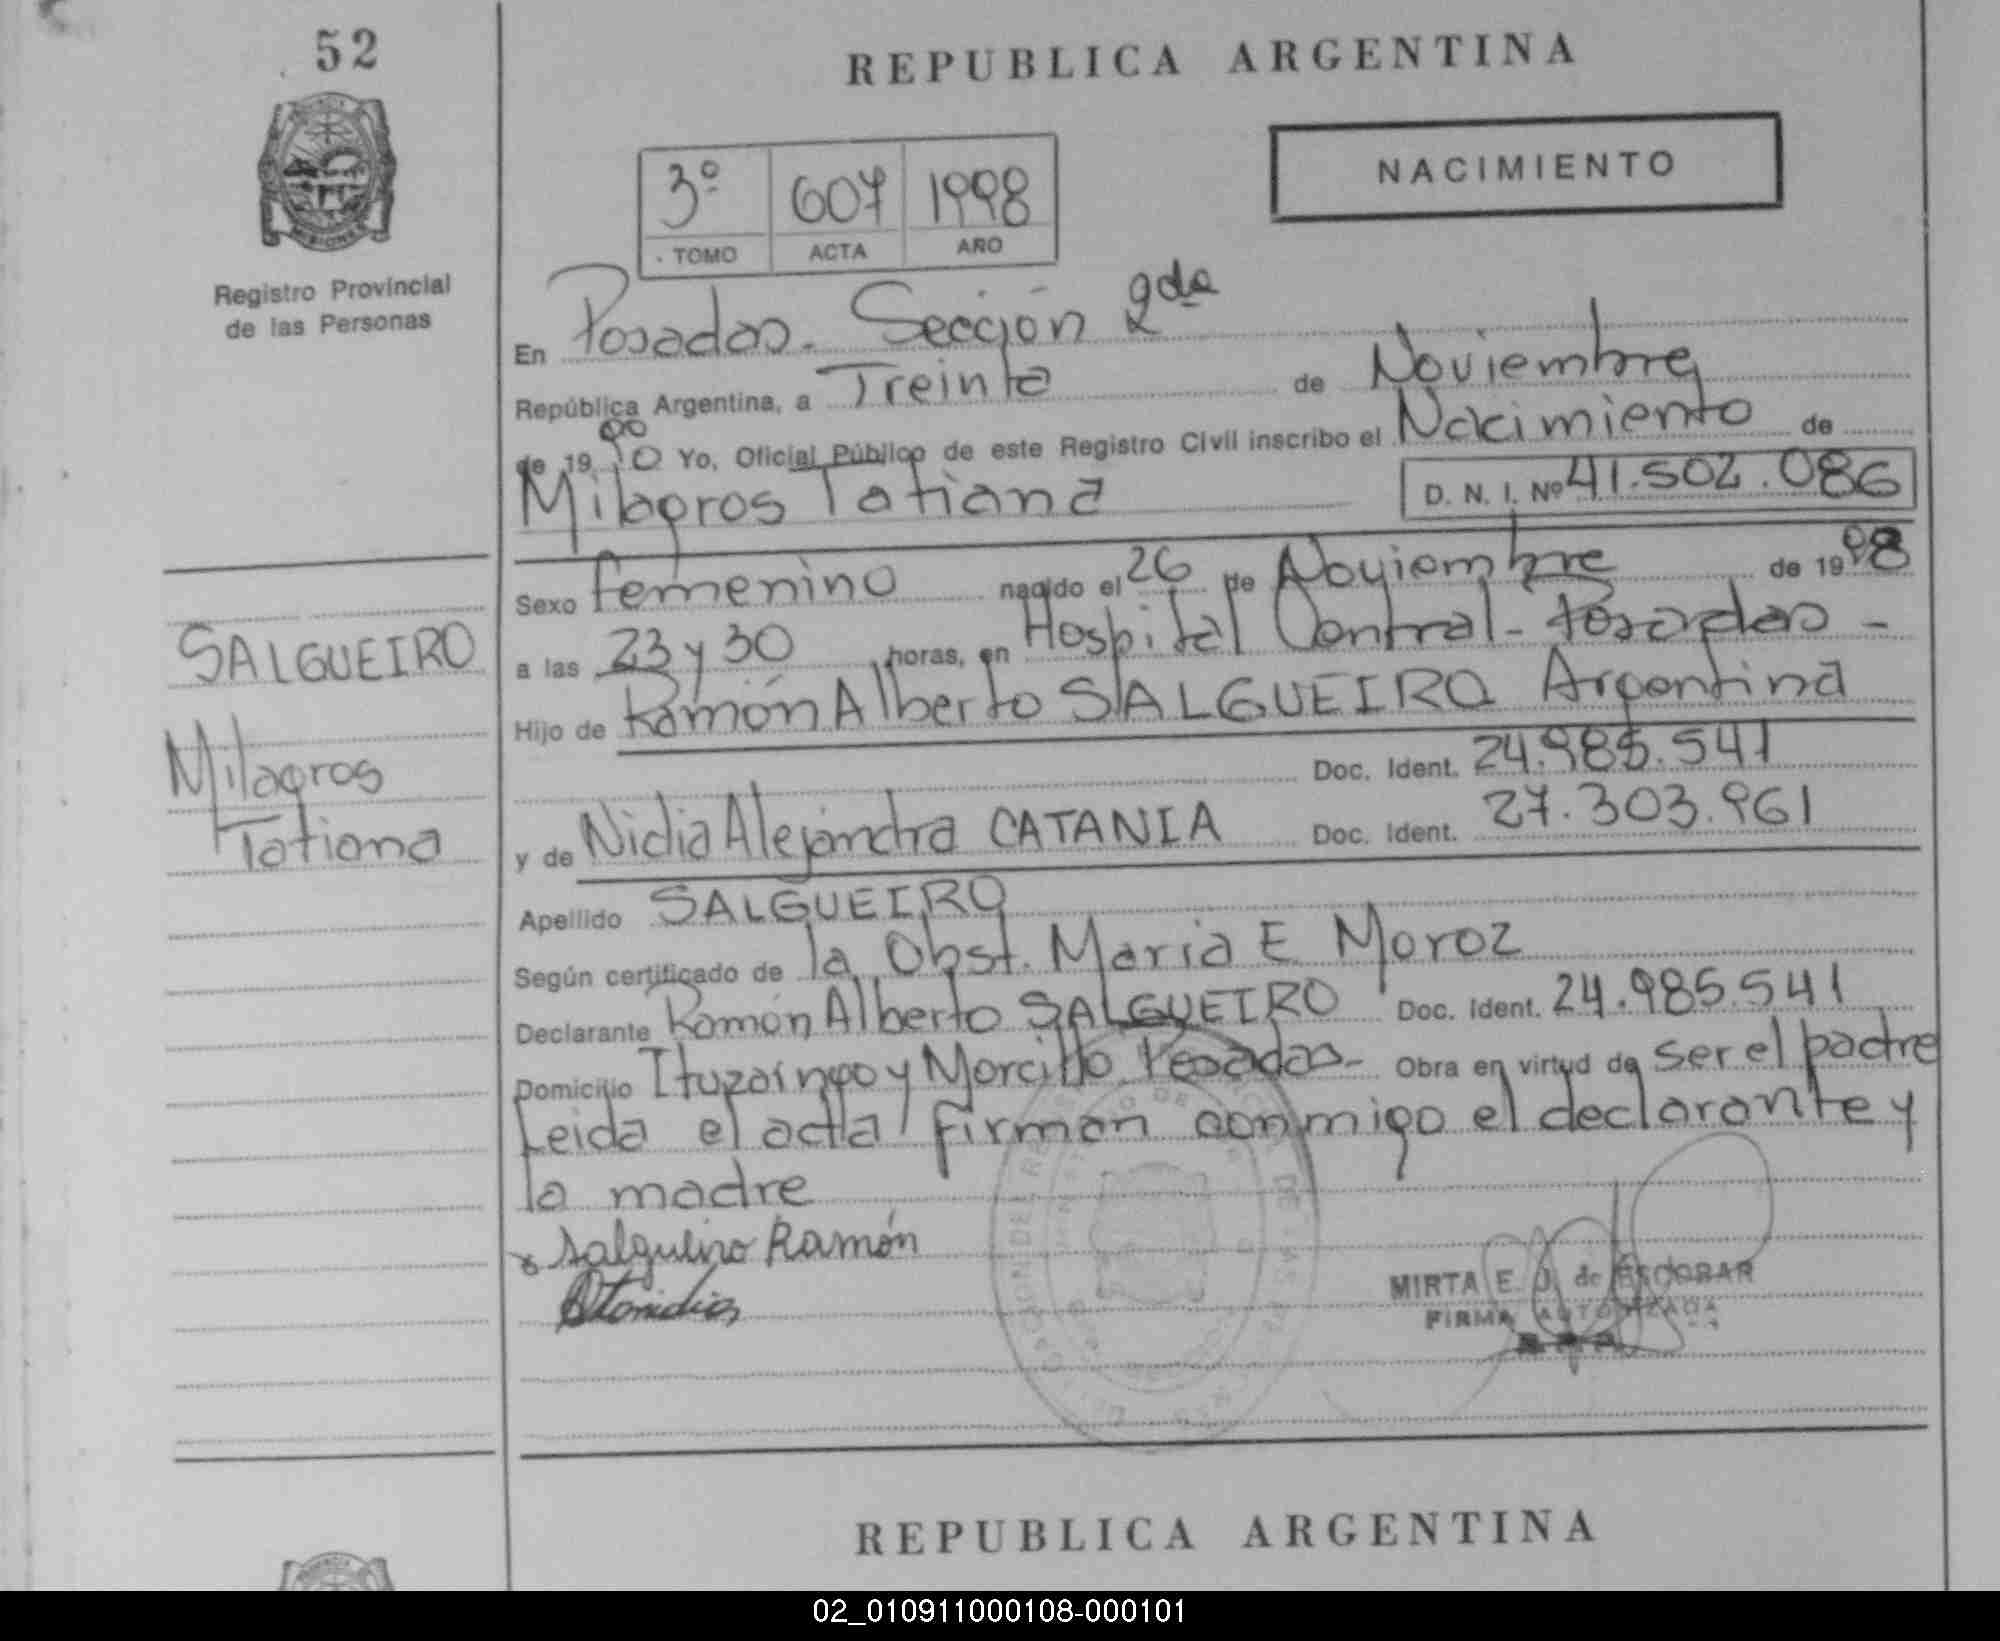 52
REPUBLICA ARGENTINA
NACIMIENTO
3º 607 1998
TOMO ACTA AÑO
Registro Provincial
de las Personas
MISIONES
En Posadas. Sección 2da
República Argentina, a Treinta de Noviembre
de 19 Yo, Oficial Público de este Registro Civil inscribo el Nacimiento de
Milagros Tatiana D. N. I. Nº 41.502.086
Sexo femenino nacido el 26 de Noviembre de 1998
a las 23 y 30 horas, en Hospital Central - Posadas -
Hijo de Ramón Alberto SALGUEIRO Argentina
Doc. Ident. 24.985.541
y de Nidia Alejandra CATANIA Doc. Ident. 27.303.961
Apellido SALGUEIRO
Según certificado de la Obst. Maria E. Moroz
Declarante Ramón Alberto SALGUEIRO Doc. Ident. 24.985.541
Domicilio Ituzaingo y Morcillo Posadas - Obra en virtud de ser el padre
Leida el acta firman conmigo el declarante y
la madre
SALGUEIRO
Milagros
Tatiana
Salgueiro Ramón
MIRTA E. J. de ESCOBAR
FIRMA AUTORIZADA
REPUBLICA ARGENTINA
02_010911000108-000101